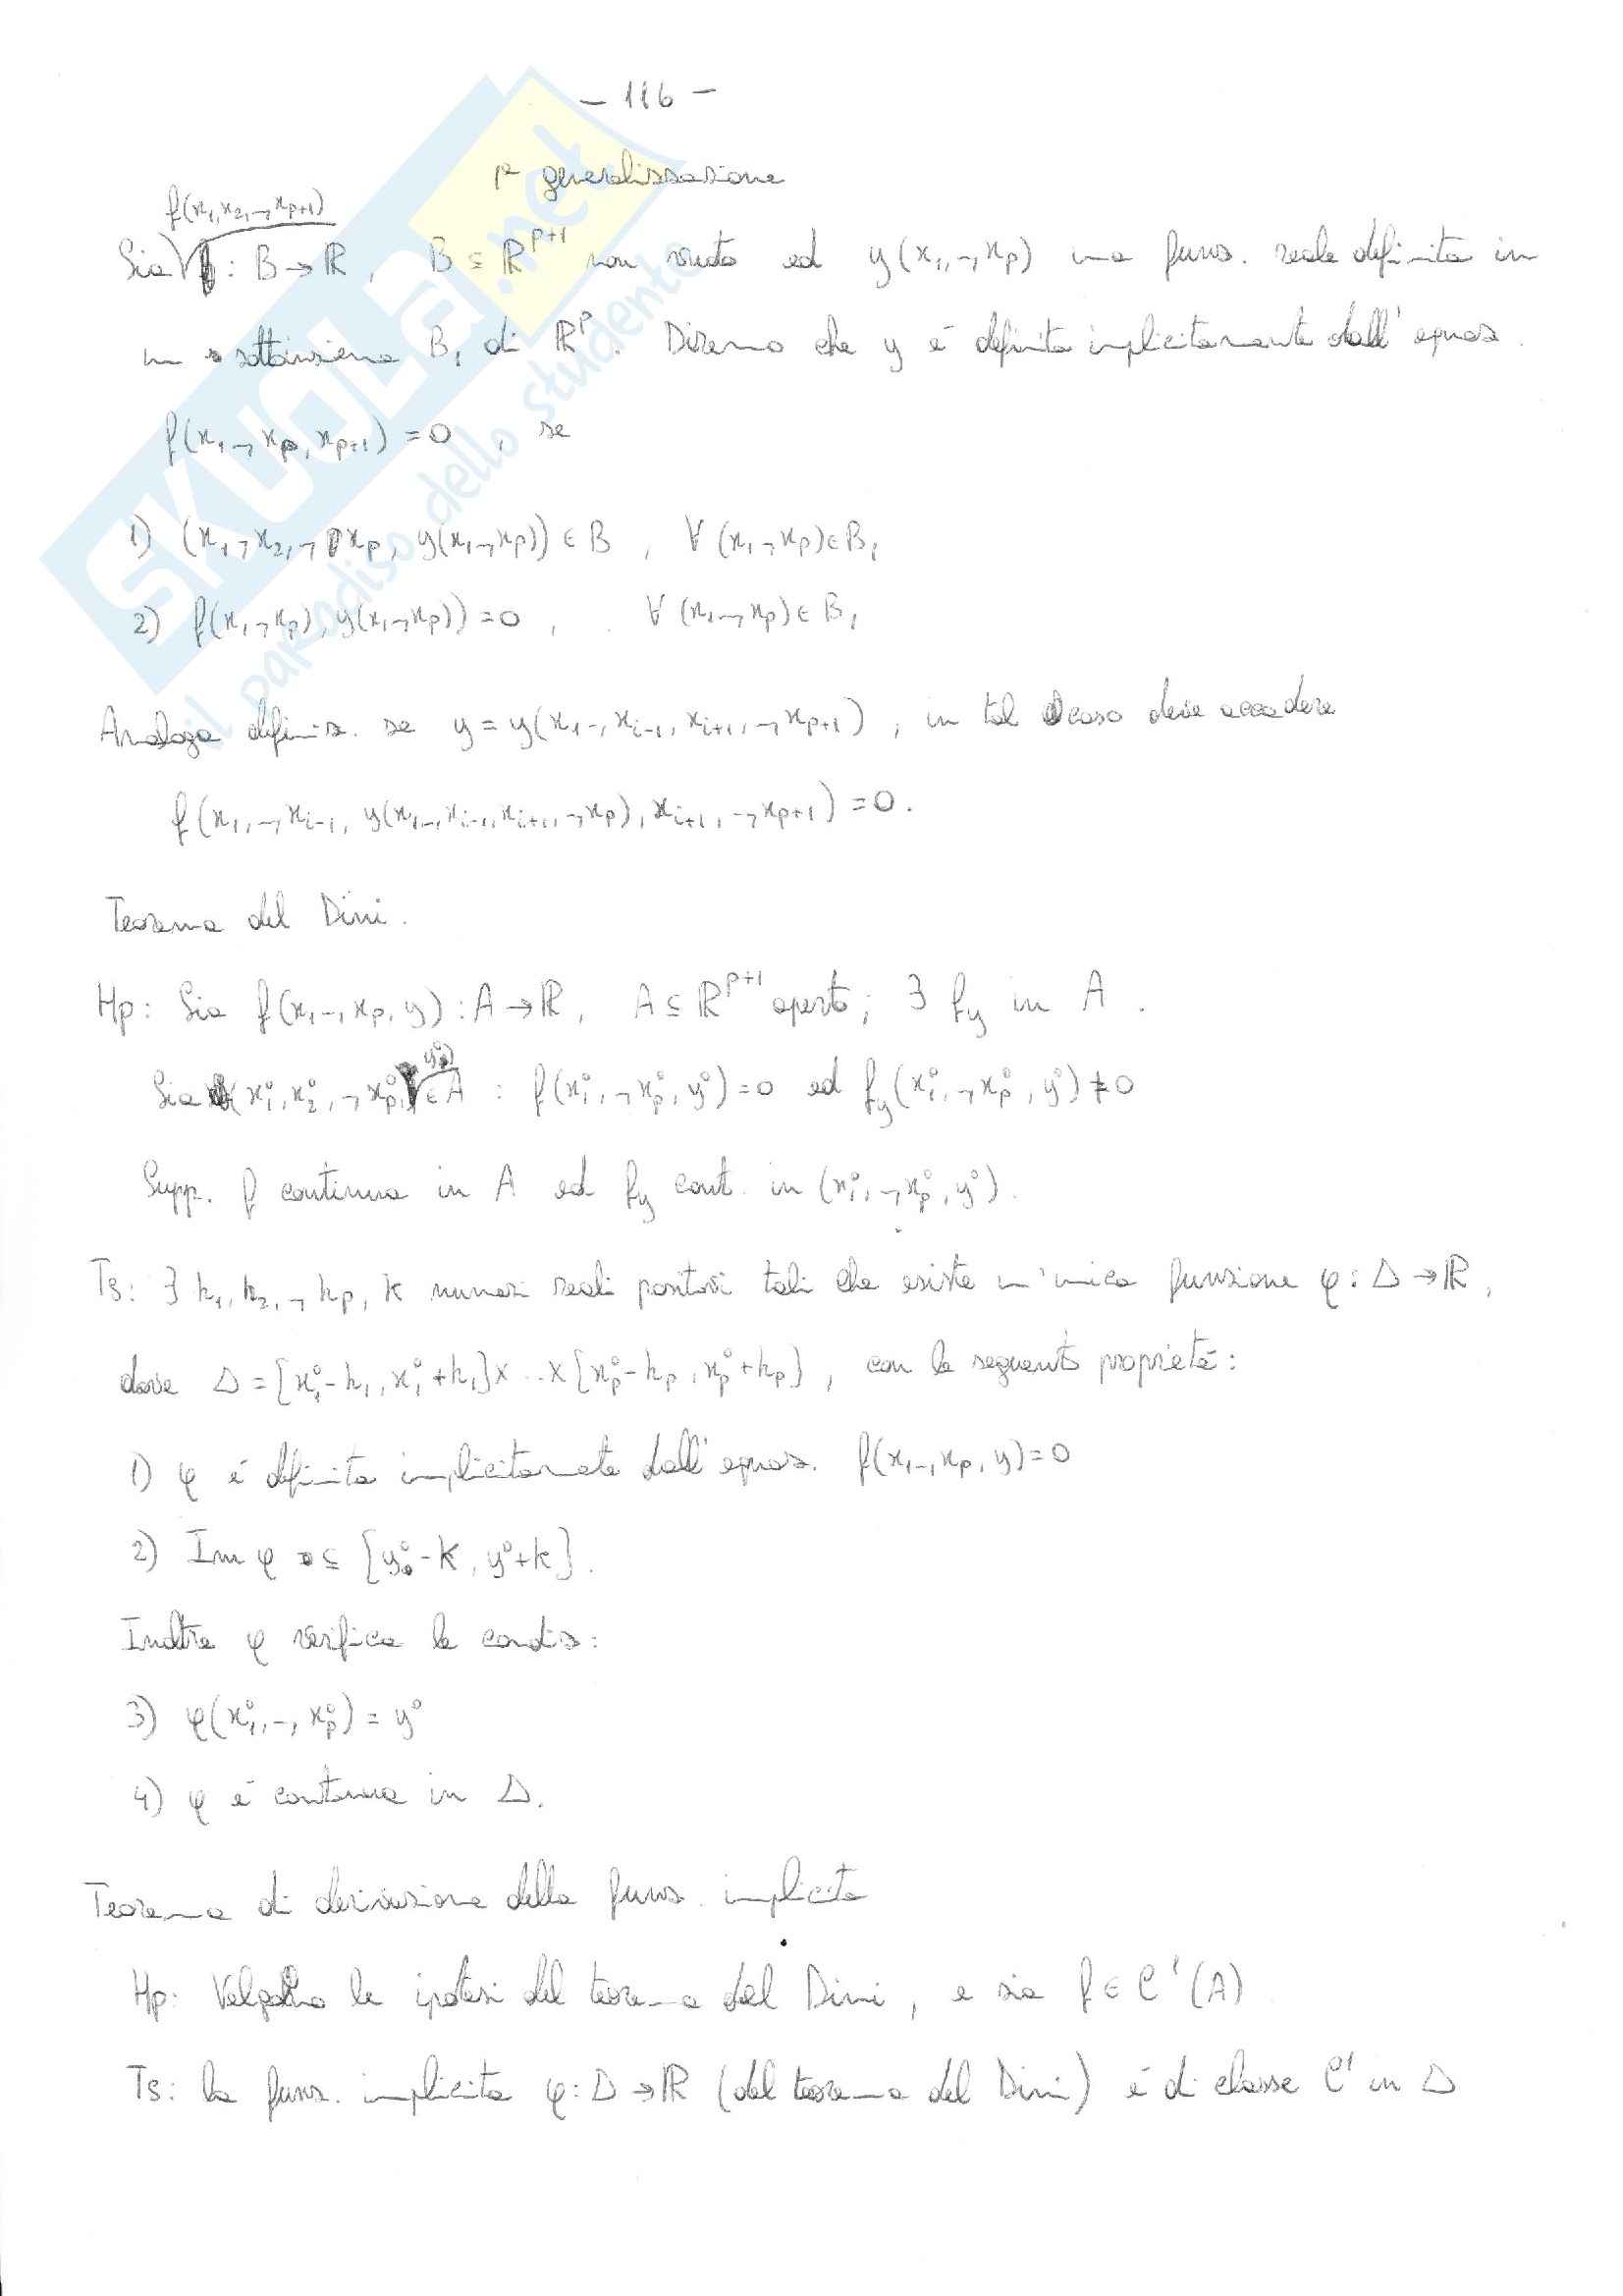 - 116 -
1ª generalizzazione
f(x₁,x₂,-,xp+1)
Sia f : B→ℝ, B ⊆ ℝᵖ⁺¹ non vuoto ed y(x₁,-,xp) una funz. reale definita in
un sottoinsieme B₁ di ℝᵖ. Diremo che y è definita implicitamente dall'equaz.
f(x₁,-,xp,xp+1)=0 , se
1) (x₁,x₂,-,xp, y(x₁,-,xp)) ∈ B , ∀ (x₁,-,xp)∈B₁
2) f(x₁,-,xp), y(x₁,-,xp))=0 , ∀ (x₁,-,xp)∈B₁
Analoga definiz. se y = y(x₁-,xi-1,xi+1,-,xp+1) , in tal caso deve accadere
f(x₁,-,xi-1, y(x₁-,xi-1,xi+1,-,xp), xi+1,-,xp+1)=0.
Teorema del Dini.
Hp: Sia f(x₁-,xp,y) : A→ℝ, A⊆ℝᵖ⁺¹ aperto; ∃ fy in A .
Sia (x₁°,x₂°,-,xp°,y°) ∈ A : f(x₁°,-,xp°,y°)=0 ed fy(x₁°,-,xp°,y°)≠0
Supp. f continua in A ed fy cont. in (x₁°,-,xp°,y°).
Ts: ∃ h₁,h₂,-,hp, k numeri reali positivi tali che esiste un'unica funzione φ: Δ→ℝ,
dove Δ=[x₁°-h₁,x₁°+h₁]x...x[xp°-hp,xp°+hp], con le seguenti proprietà:
1) φ è definita implicitamente dall'equaz. f(x₁-,xp,y)=0
2) Im φ ⊆ [y°-k, y°+k].
Inoltre φ verifica le condiz:
3) φ(x₁°,-,xp°) = y°
4) φ è continua in Δ.
Teorema di derivazione della funz. implicita
Hp: Valgano le ipotesi del teorema del Dini, e sia f ∈ C¹(A)
Ts: la funz. implicita φ: Δ→ℝ (del teorema del Dini) è di classe C¹ in Δ
SKUOLA.net
il paradiso dello studente